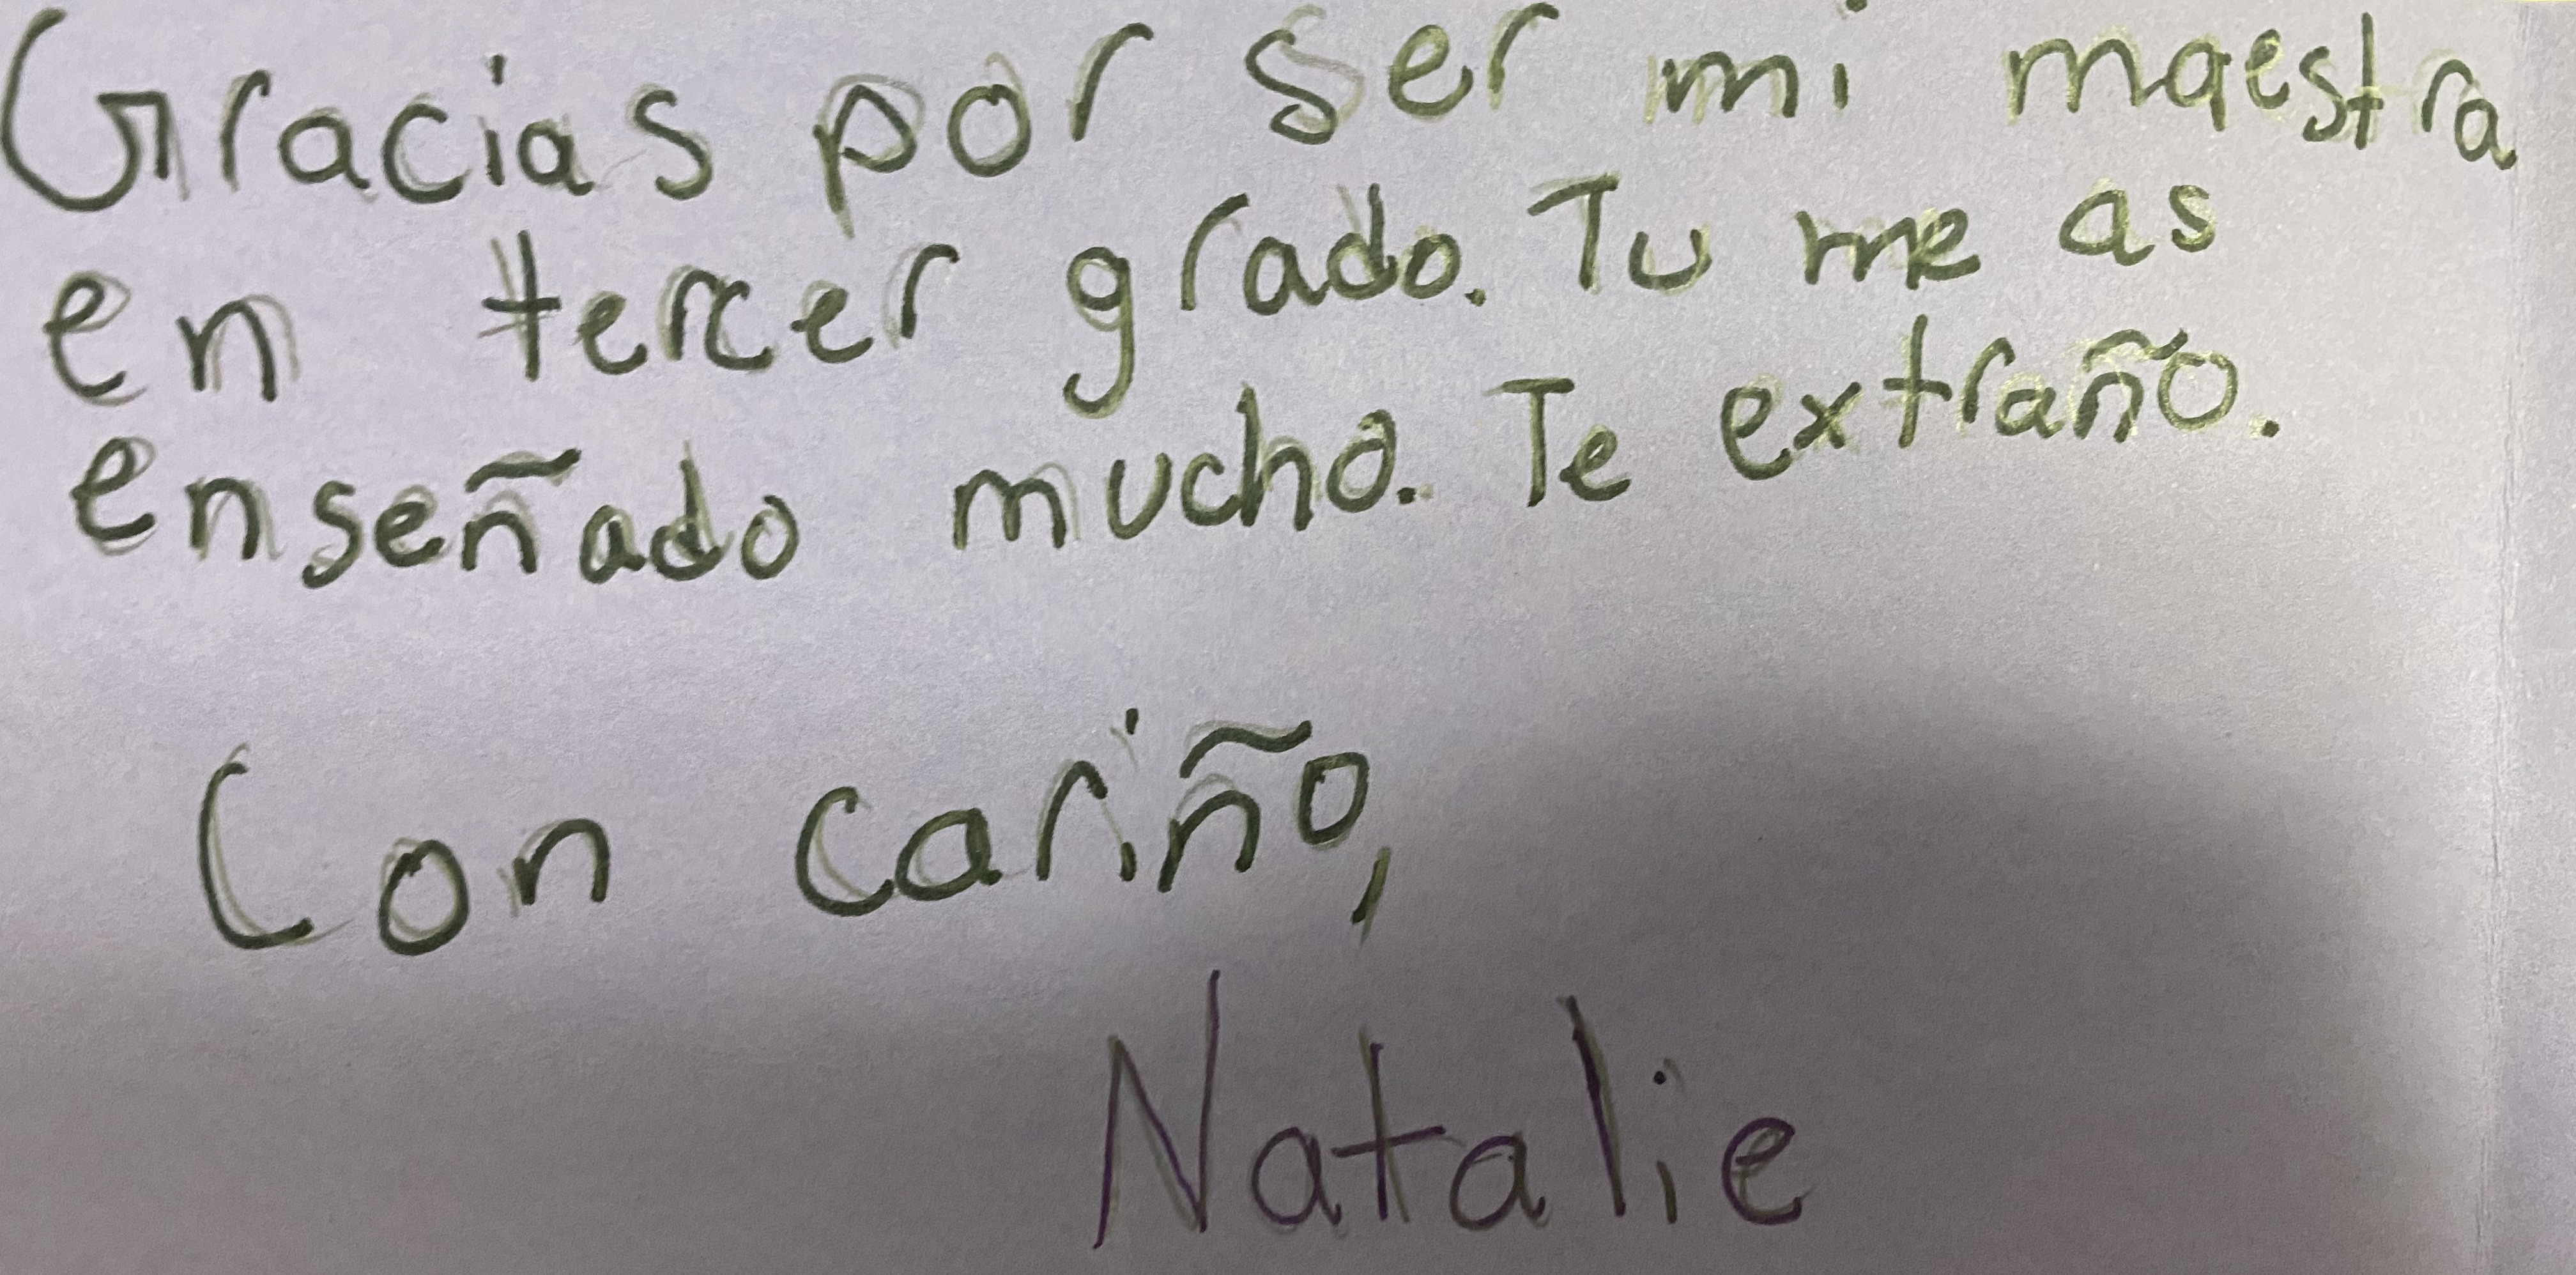 Gracias por ser mi maestra
en tercer grado. Tu me as
enseñado mucho. Te extraño.
Con cariño,
Natalie